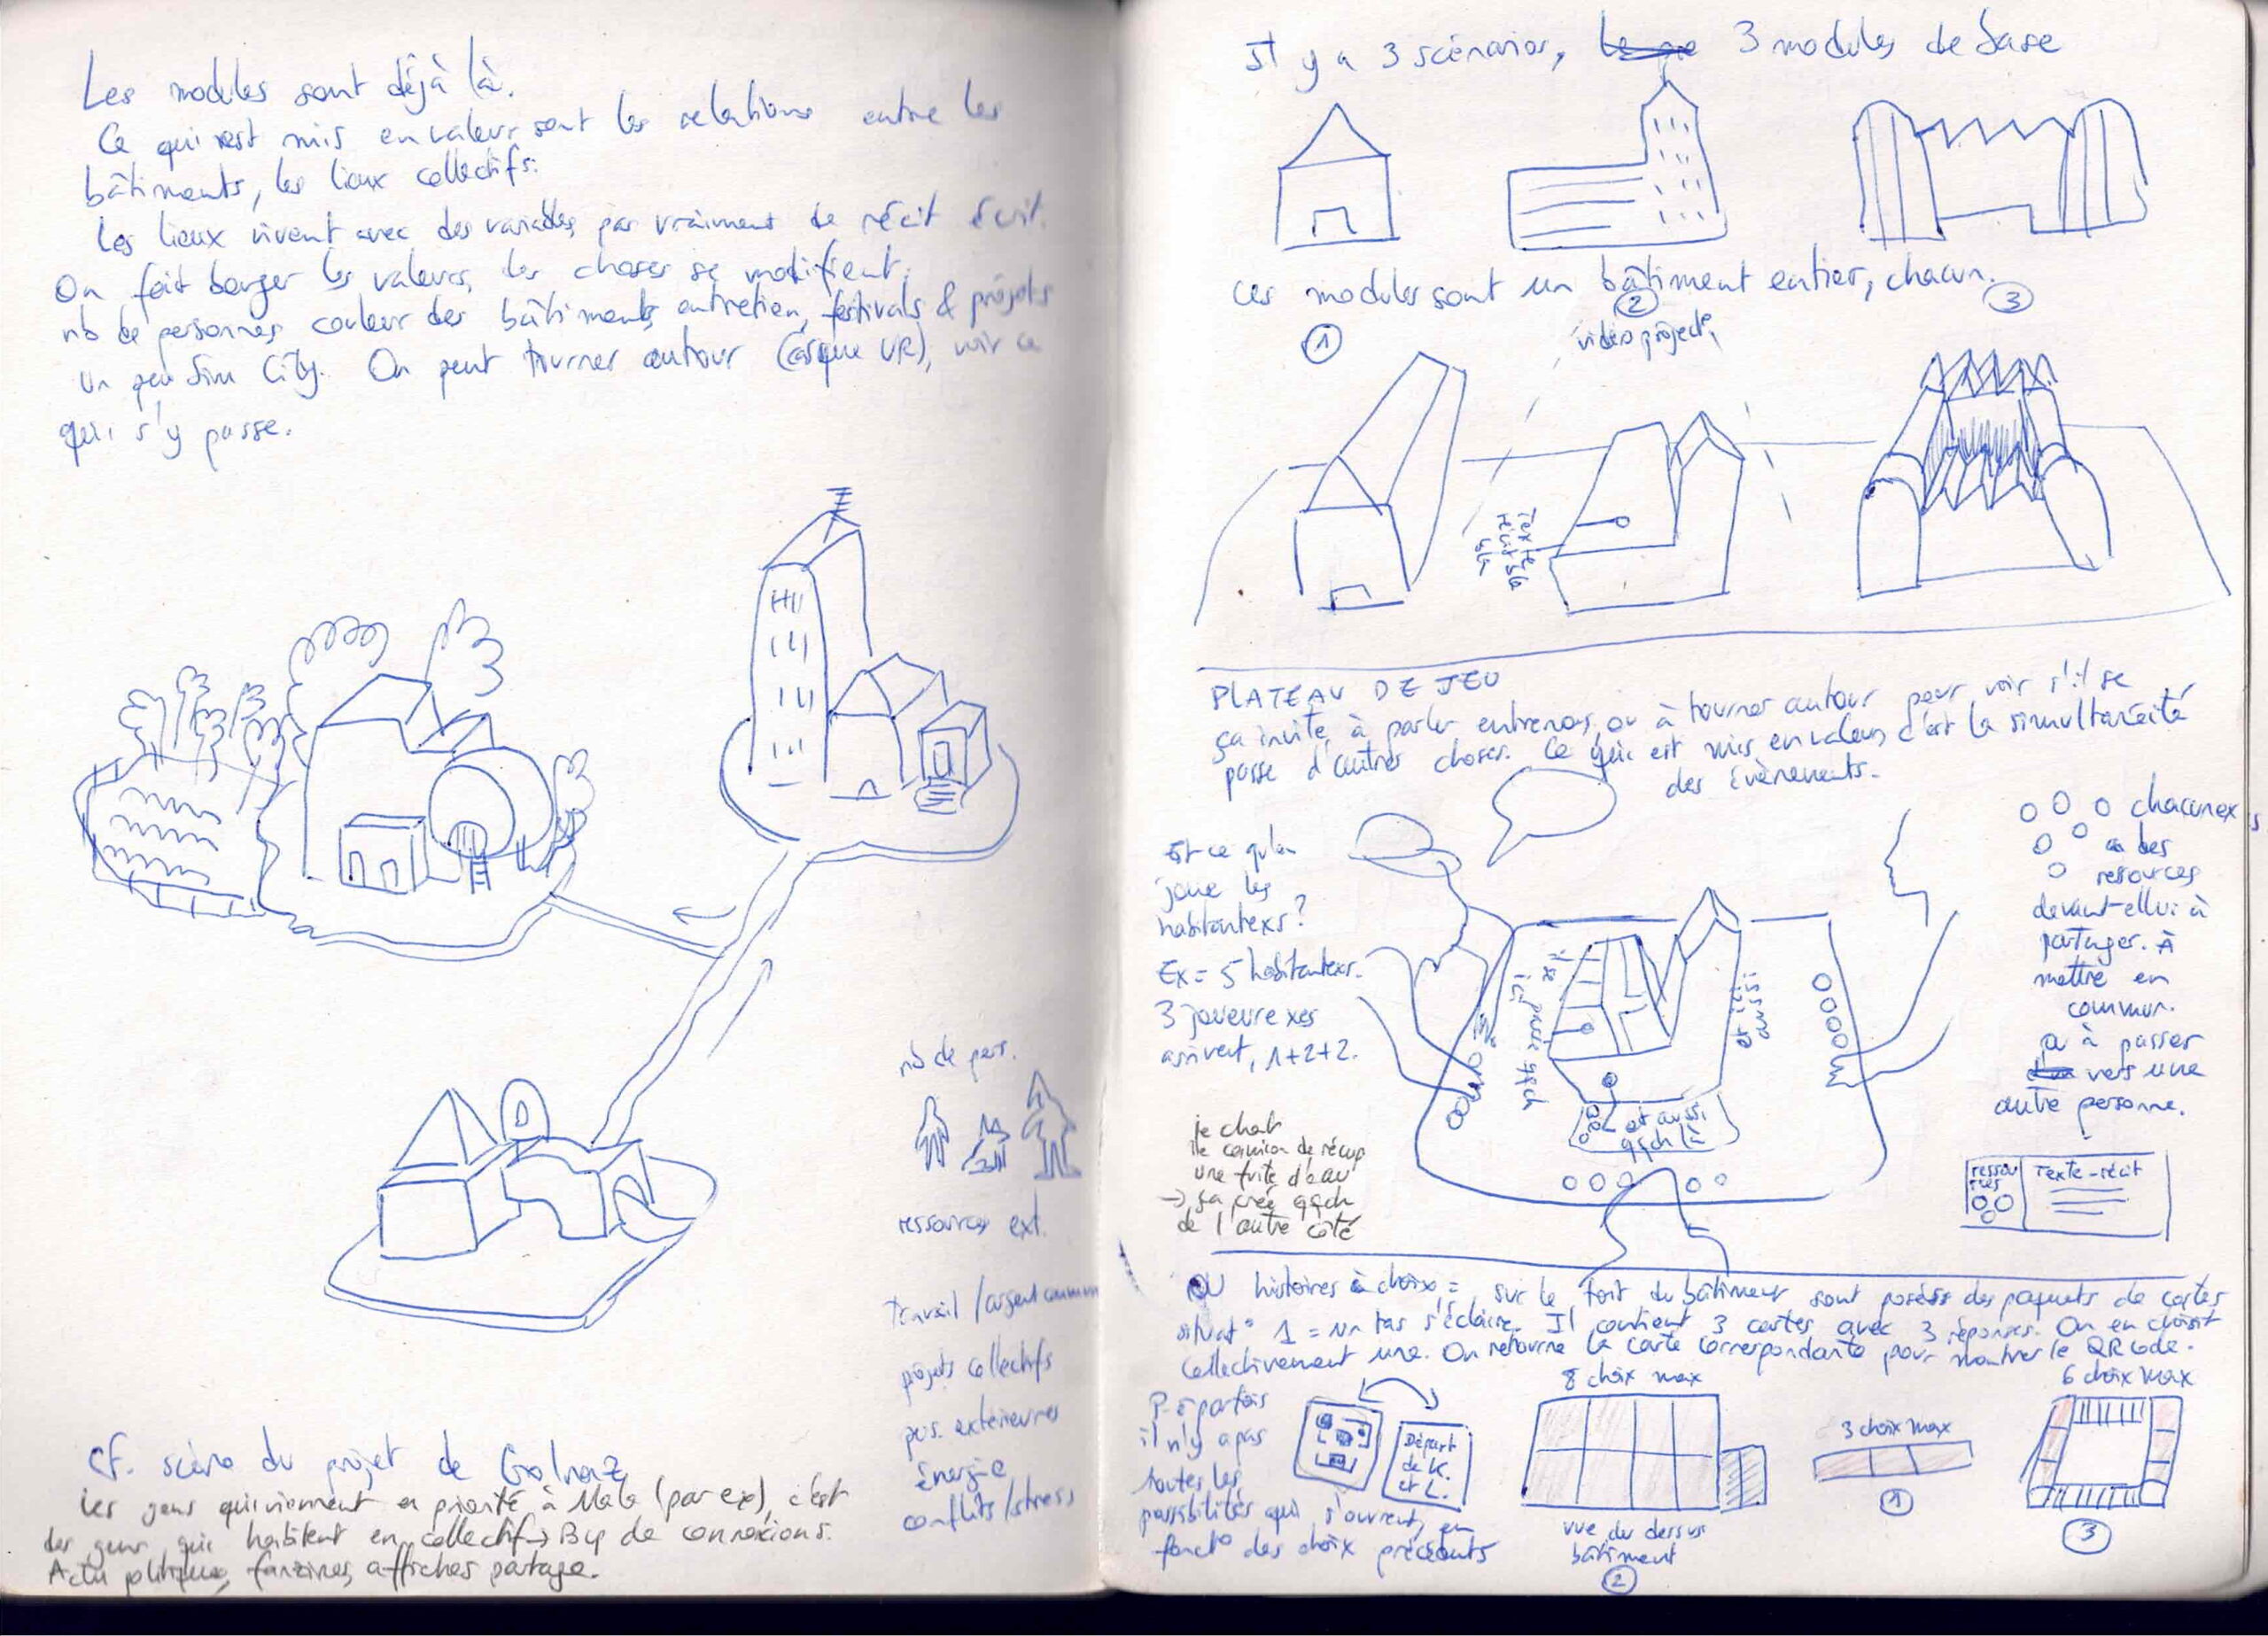 Les modules sont déjà là.
Ce qui est mis en valeur sont les relations entre les
bâtiments, les lieux collectifs.
Les lieux vivent avec des variables, pas vraiment de récit écrit.
On fait bouger les valeurs, les choses se modifient.
nb de personnes couleur des bâtiments entretien, festivals & projets
Un peu Sim City. On peut tourner autour (casque VR), voir ce
qui s'y passe.
nb de pers.
ressources ext.
travail / argent commun
projets collectifs
pers. extérieures
énergie
conflits / stress
Cf. scéno du projet de
Les gens qui viennent en priorité à (par ex), c'est
des gens qui habitent en collectif → Bcp de connexions.
Actu politique, fanzines, affiches partage.
Il y a 3 scénarios, 3 modules de base
Ces modules sont un bâtiment entier, chacun.
① ② ③
vidéo project°
Texte
récit bla
bla
PLATEAU DE JEU
ça invite à parler entre nous, ou à tourner autour pour voir s'il se
passe d'autres choses. Ce qui est mis en valeur, c'est la simultanéité
des évènements.
Est ce qu'on
joue les
habitantexs?
Ex = 5 habitantexs.
3 joueurexes
arrivent, 1+2+2.
le chat
le camion de récup
une fuite d'eau
→ ça crée qqch
de l'autre côté
ici, passe qqch
et ici
aussi
et aussi
qqch là
chacunex
a des
resources
devant ellui à
partager. À
mettre en
commun.
à passer
vers une
autre personne.
ressou
rces
Texte-récit
OU histoires à choix = sur le toit du bâtiment sont posées des paquets de cartes
situat° 1 = un tas s'éclaire. Il contient 3 cartes avec 3 réponses. On en choisit
collectivement une. On retourne la carte correspondante pour montrer le QR code.
P-ê parfois
il n'y a pas
toutes les
possibilités qui s'ouvrent, en
fonct° des choix précédents
Départ
de K.
et L.
8 choix max
vue du dessus
bâtiment
②
3 choix max
①
6 choix max
③